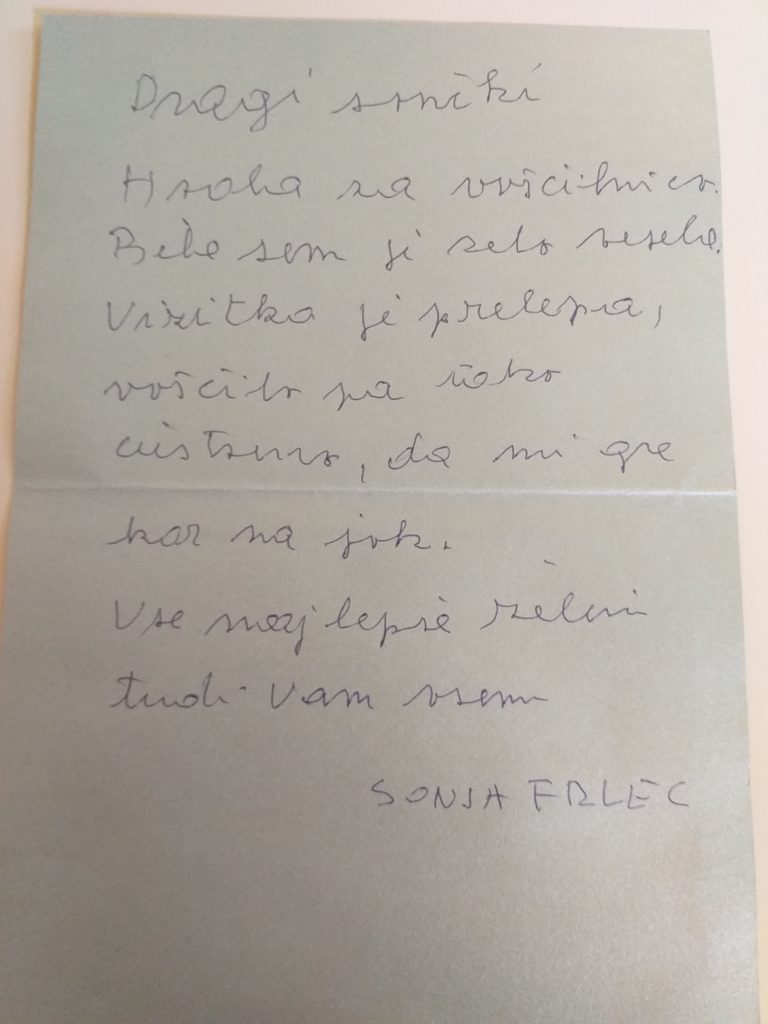 Dragi sončki
Hvala za voščilnico.
Bila sem je zelo vesela.
Vizitka je prelepa,
voščilo pa tako
čustveno, da mi gre
kar na jok.
Vse najlepše želim
tudi vam vsem
SONJA FRLEC